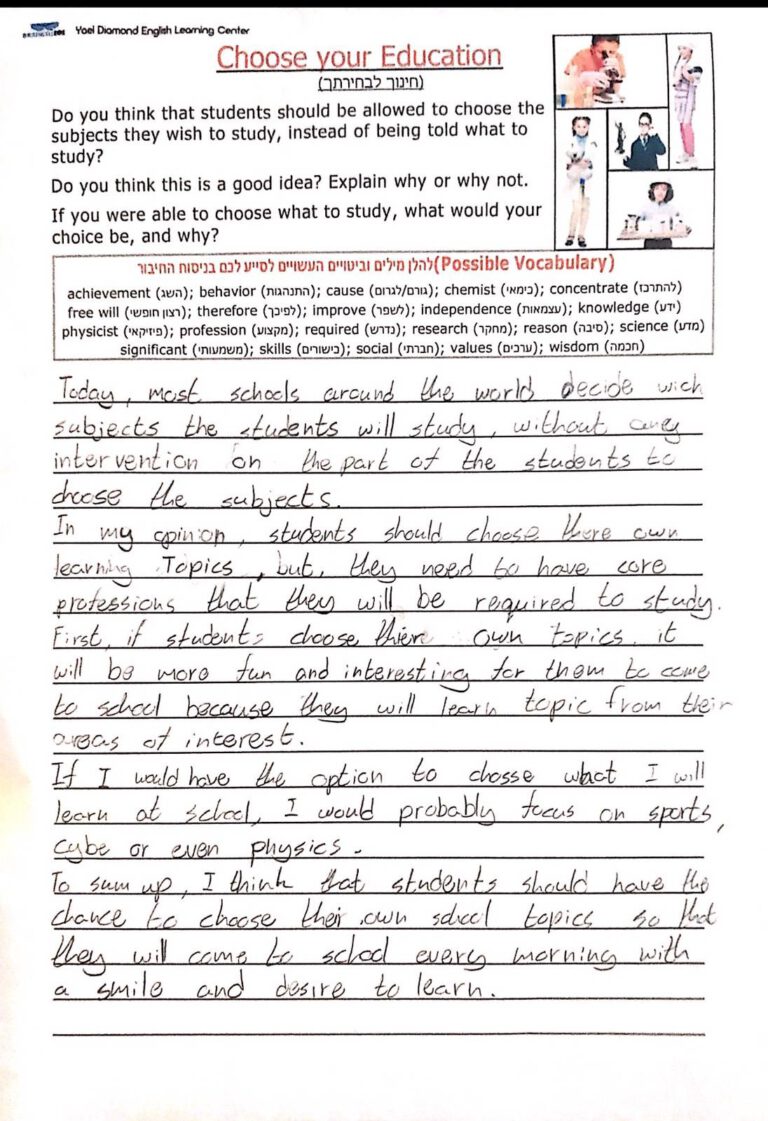 Yael Diamond English Learning Center
Choose your Education
(חינוך לבחירתך)
Do you think that students should be allowed to choose the
subjects they wish to study, instead of being told what to
study?
Do you think this is a good idea? Explain why or why not.
If you were able to choose what to study, what would your
choice be, and why?
להלן מילים וביטויים העשויים לסייע לכם בניסוח החיבור(Possible Vocabulary)
achievement (השג); behavior (התנהגות); cause (גורם/לגרום); chemist (כימאי); concentrate (להתרכז)
free will (רצון חופשי); therefore (לפיכך); improve (לשפר); independence (עצמאות); knowledge (ידע)
physicist (פיזיקאי); profession (מקצוע); required (נדרש); research (מחקר); reason (סיבה); science (מדע)
significant (משמעותי); skills (כישורים); social (חברתי); values (ערכים); wisdom (חכמה)
Today, most schools around the world decide wich
subjects the students will study, without any
intervention on the part of the students to
choose the subjects.
In my opinion, students should choose there own
learning Topics, but, they need to have core
professions that they will be required to study.
First, if students choose thiere own topics, it
will be more fun and interesting for them to come
to school because they will learn topic from their
areas of interest.
If I would have the option to chosse what I will
learn at school, I would probably focus on sports,
cybe or even physics.
To sum up, I think that students should have the
chance to choose their own school topics so that
they will come to school every morning with
a smile and desire to learn.